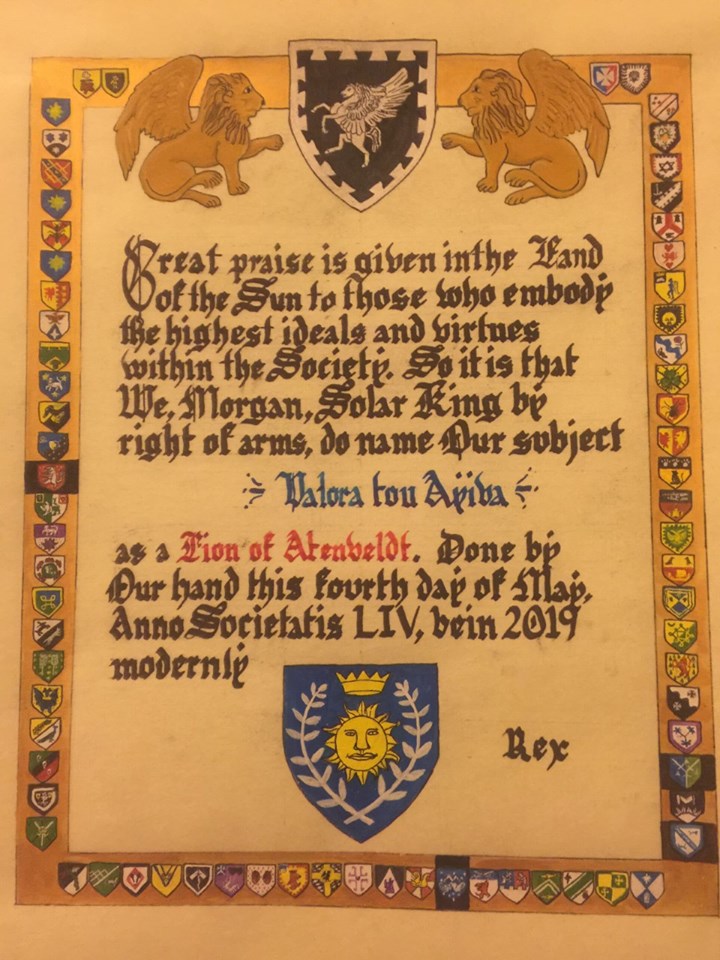 Great praise is given in the Land
of the Sun to those who embody
the highest ideals and virtues
within the Society. So it is that
We, Morgan, Solar King by
right of arms, do name Our subject
Valora tou Aÿiva
as a Lion of Atenveldt. Done by
Our hand this fourth day of May,
Anno Societatis LIV, bein 2019
modernly
Rex